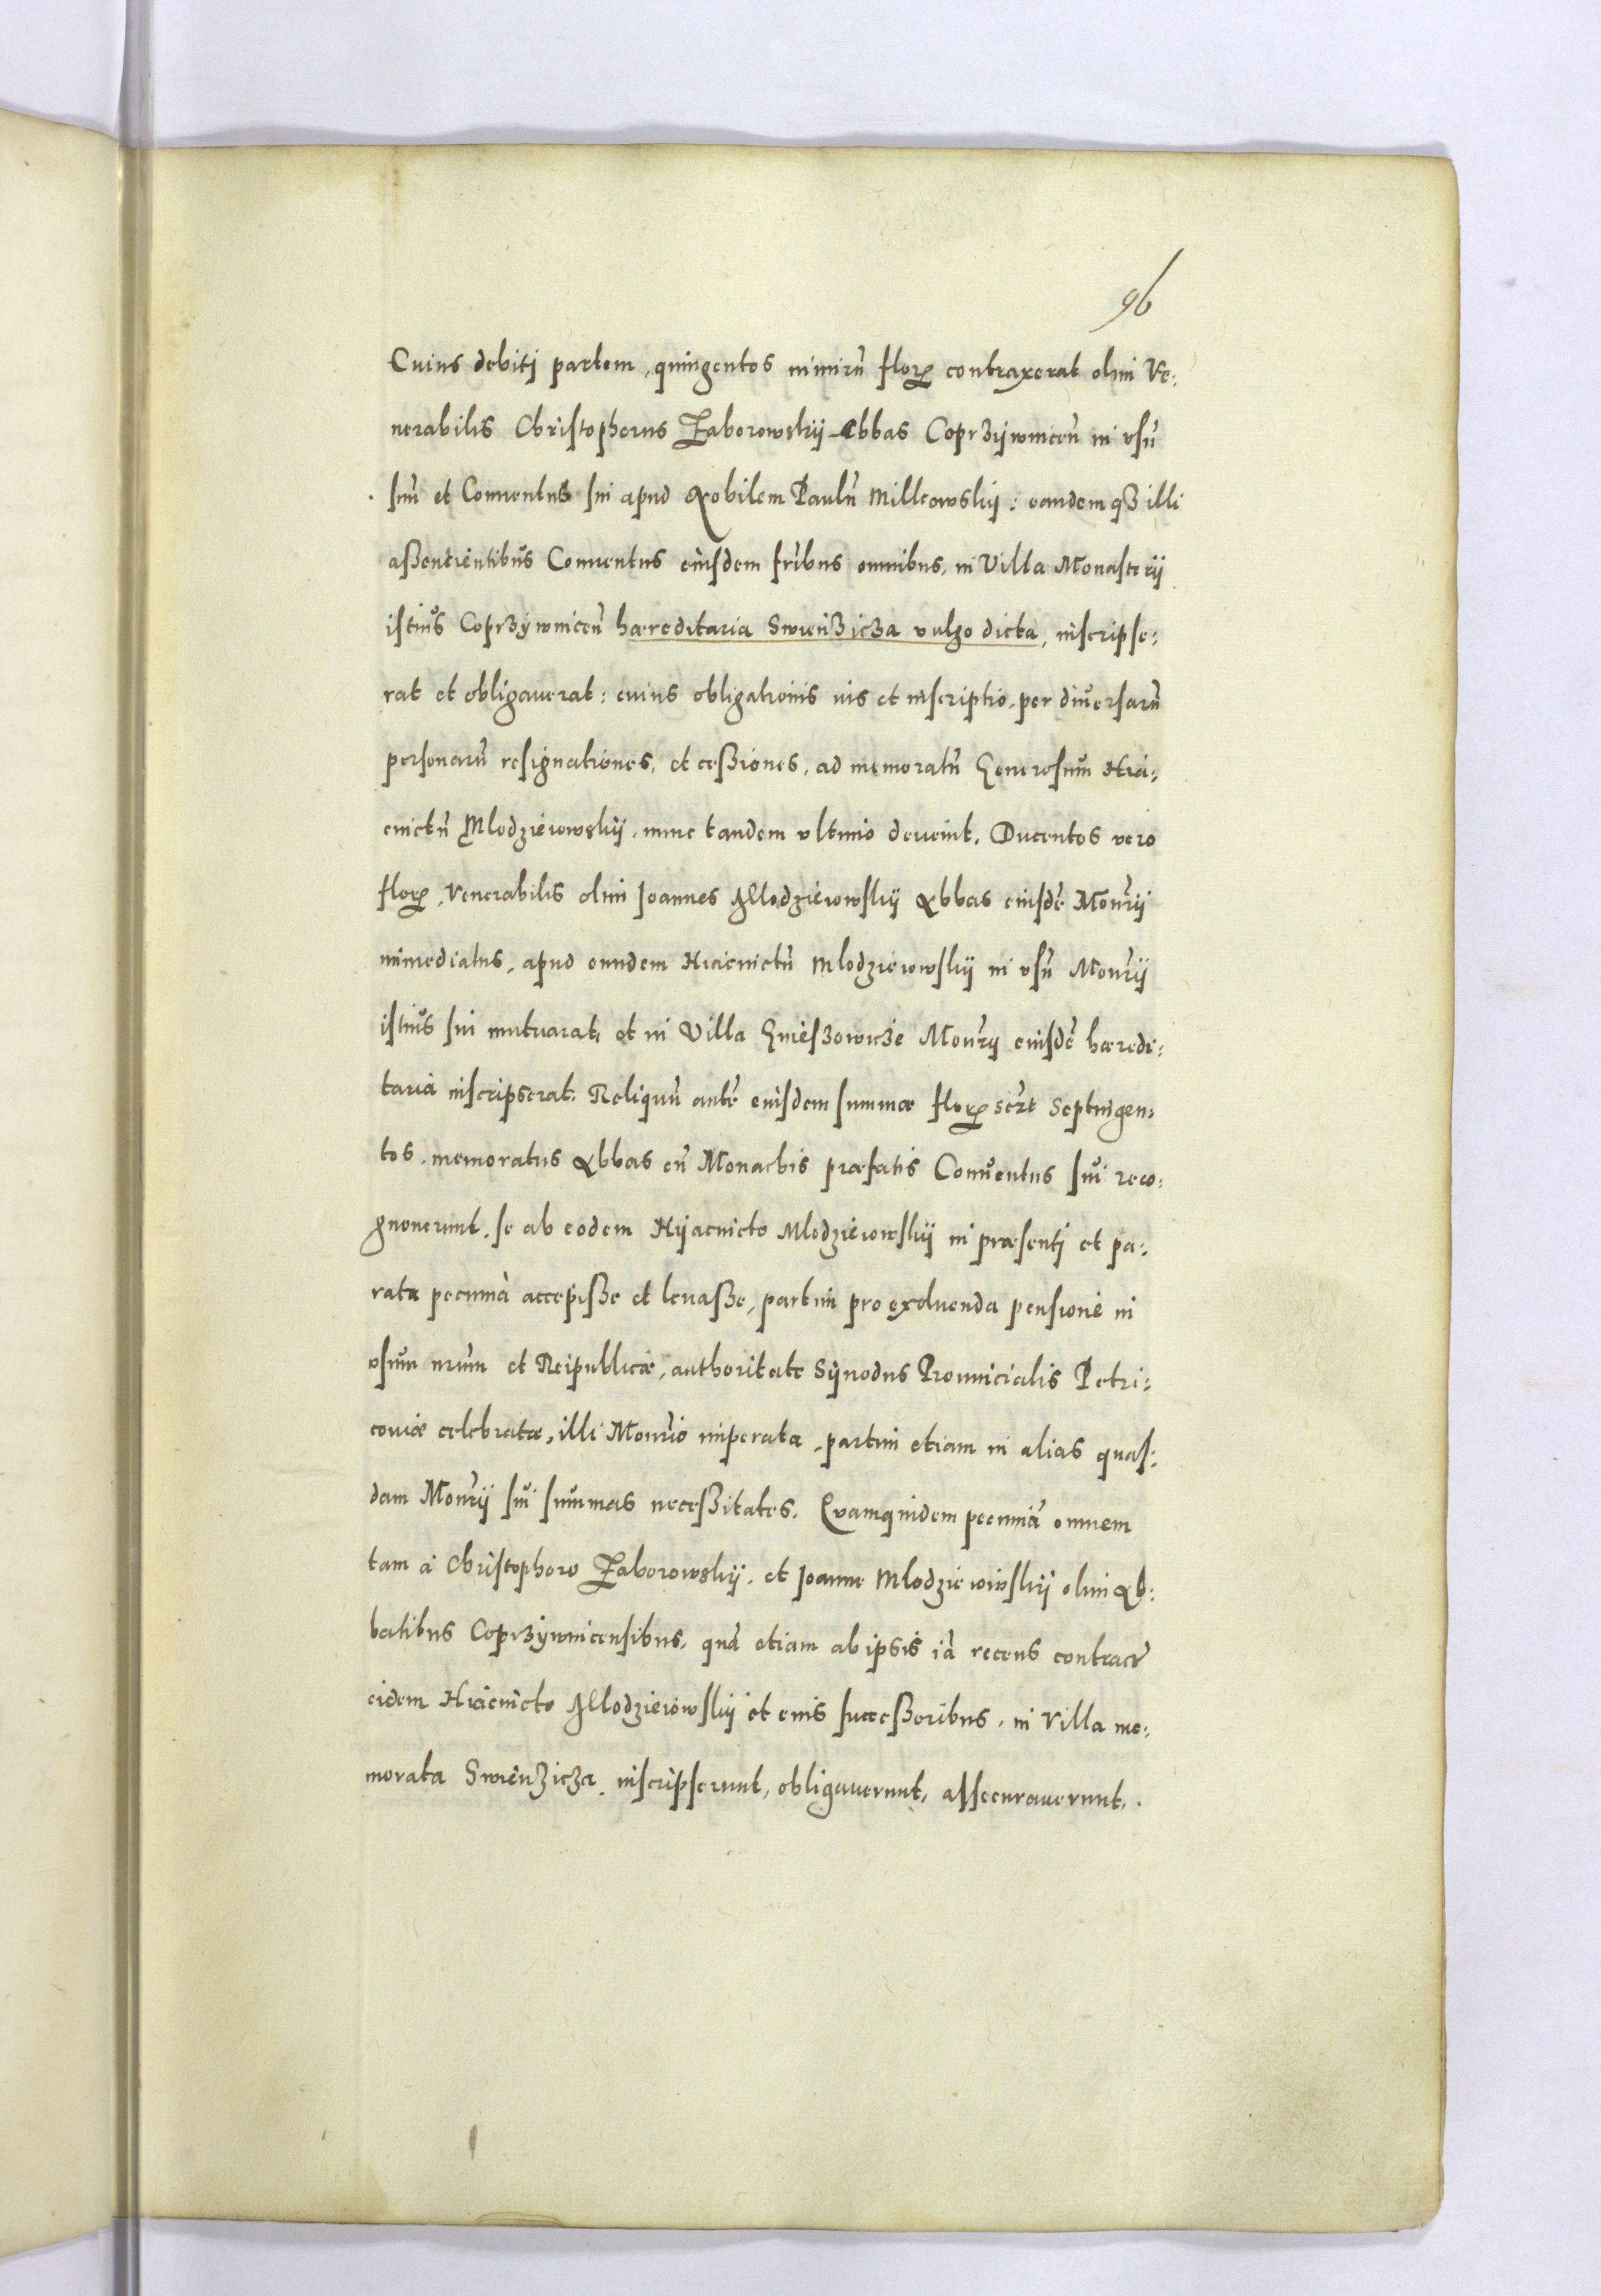 96
Cuius debiti partem, quingentos nimirū floꝝ contraxerat olim Ve:
nerabilis Christophorus Zaborowskij Abbas Coprzÿwnicen̄ in vsū
suū et Conuentus sui apud Nobilem Paulū Milkowskij: eandemqȝ illi
aßencientibus Conuentus eiusdem fr̄ibus omnibus, in Villa Monasterij
istius Coprzÿwnicen̄ hæreditaria Swienzicza vulgo dicta, inscripse:
rat et obligauerat: cuius obligationis uis et inscriptio, per diuersarū
personarū resignationes, et ceßiones, ad memoratū Generosum Hia:
cinctū Mlodzieiowskij, nunc tandem vltimo deuenit. Ducentos vero
floꝝ, Venerabilis olim Joannes Mlodzieiowskij Abbas eiusdē Mon̄rij
immediatus, apud eundem Hiacinctū Mlodzieiowskij in vsū Mon̄rij
istius sui mutuarat, et in Villa Gnieszowicze Mon̄rij eiusdē hærede:
taria inscripserat. Reliquū autē eiusdem summæ floꝝ Septuigen:
tos, memoratus Abbas cū Monachis præfatis Conuentus sui reco:
gnouerunt, se ab eodem Hÿacincto Mlodzieiowskij in præsentj et pa:
rata pecunia accepiße et leuaße, partim pro exoluenda pensione in
vsum nr̄um et Reipublicæ, authoritate Sÿnodus Prouincialis Petri:
couiæ celebratæ, illi Mon̄rio imperata, partim etiam in alias quas:
dam Mon̄rij sui summas neceßitates. Quamquidem pecuniā omnem
tam à Christophoro Zaborowskij, et Joanne Mlodzieiowskij olim Ab:
batibus Coprzÿwnicensibus, quā etiam ab ipsis iā recens contract̄
eidem Hiacincto Mlodzieiowskij et eius succeßoribus, in Villa me:
morata Swienzicza inscripserunt, obligauerunt, assecurauerunt.